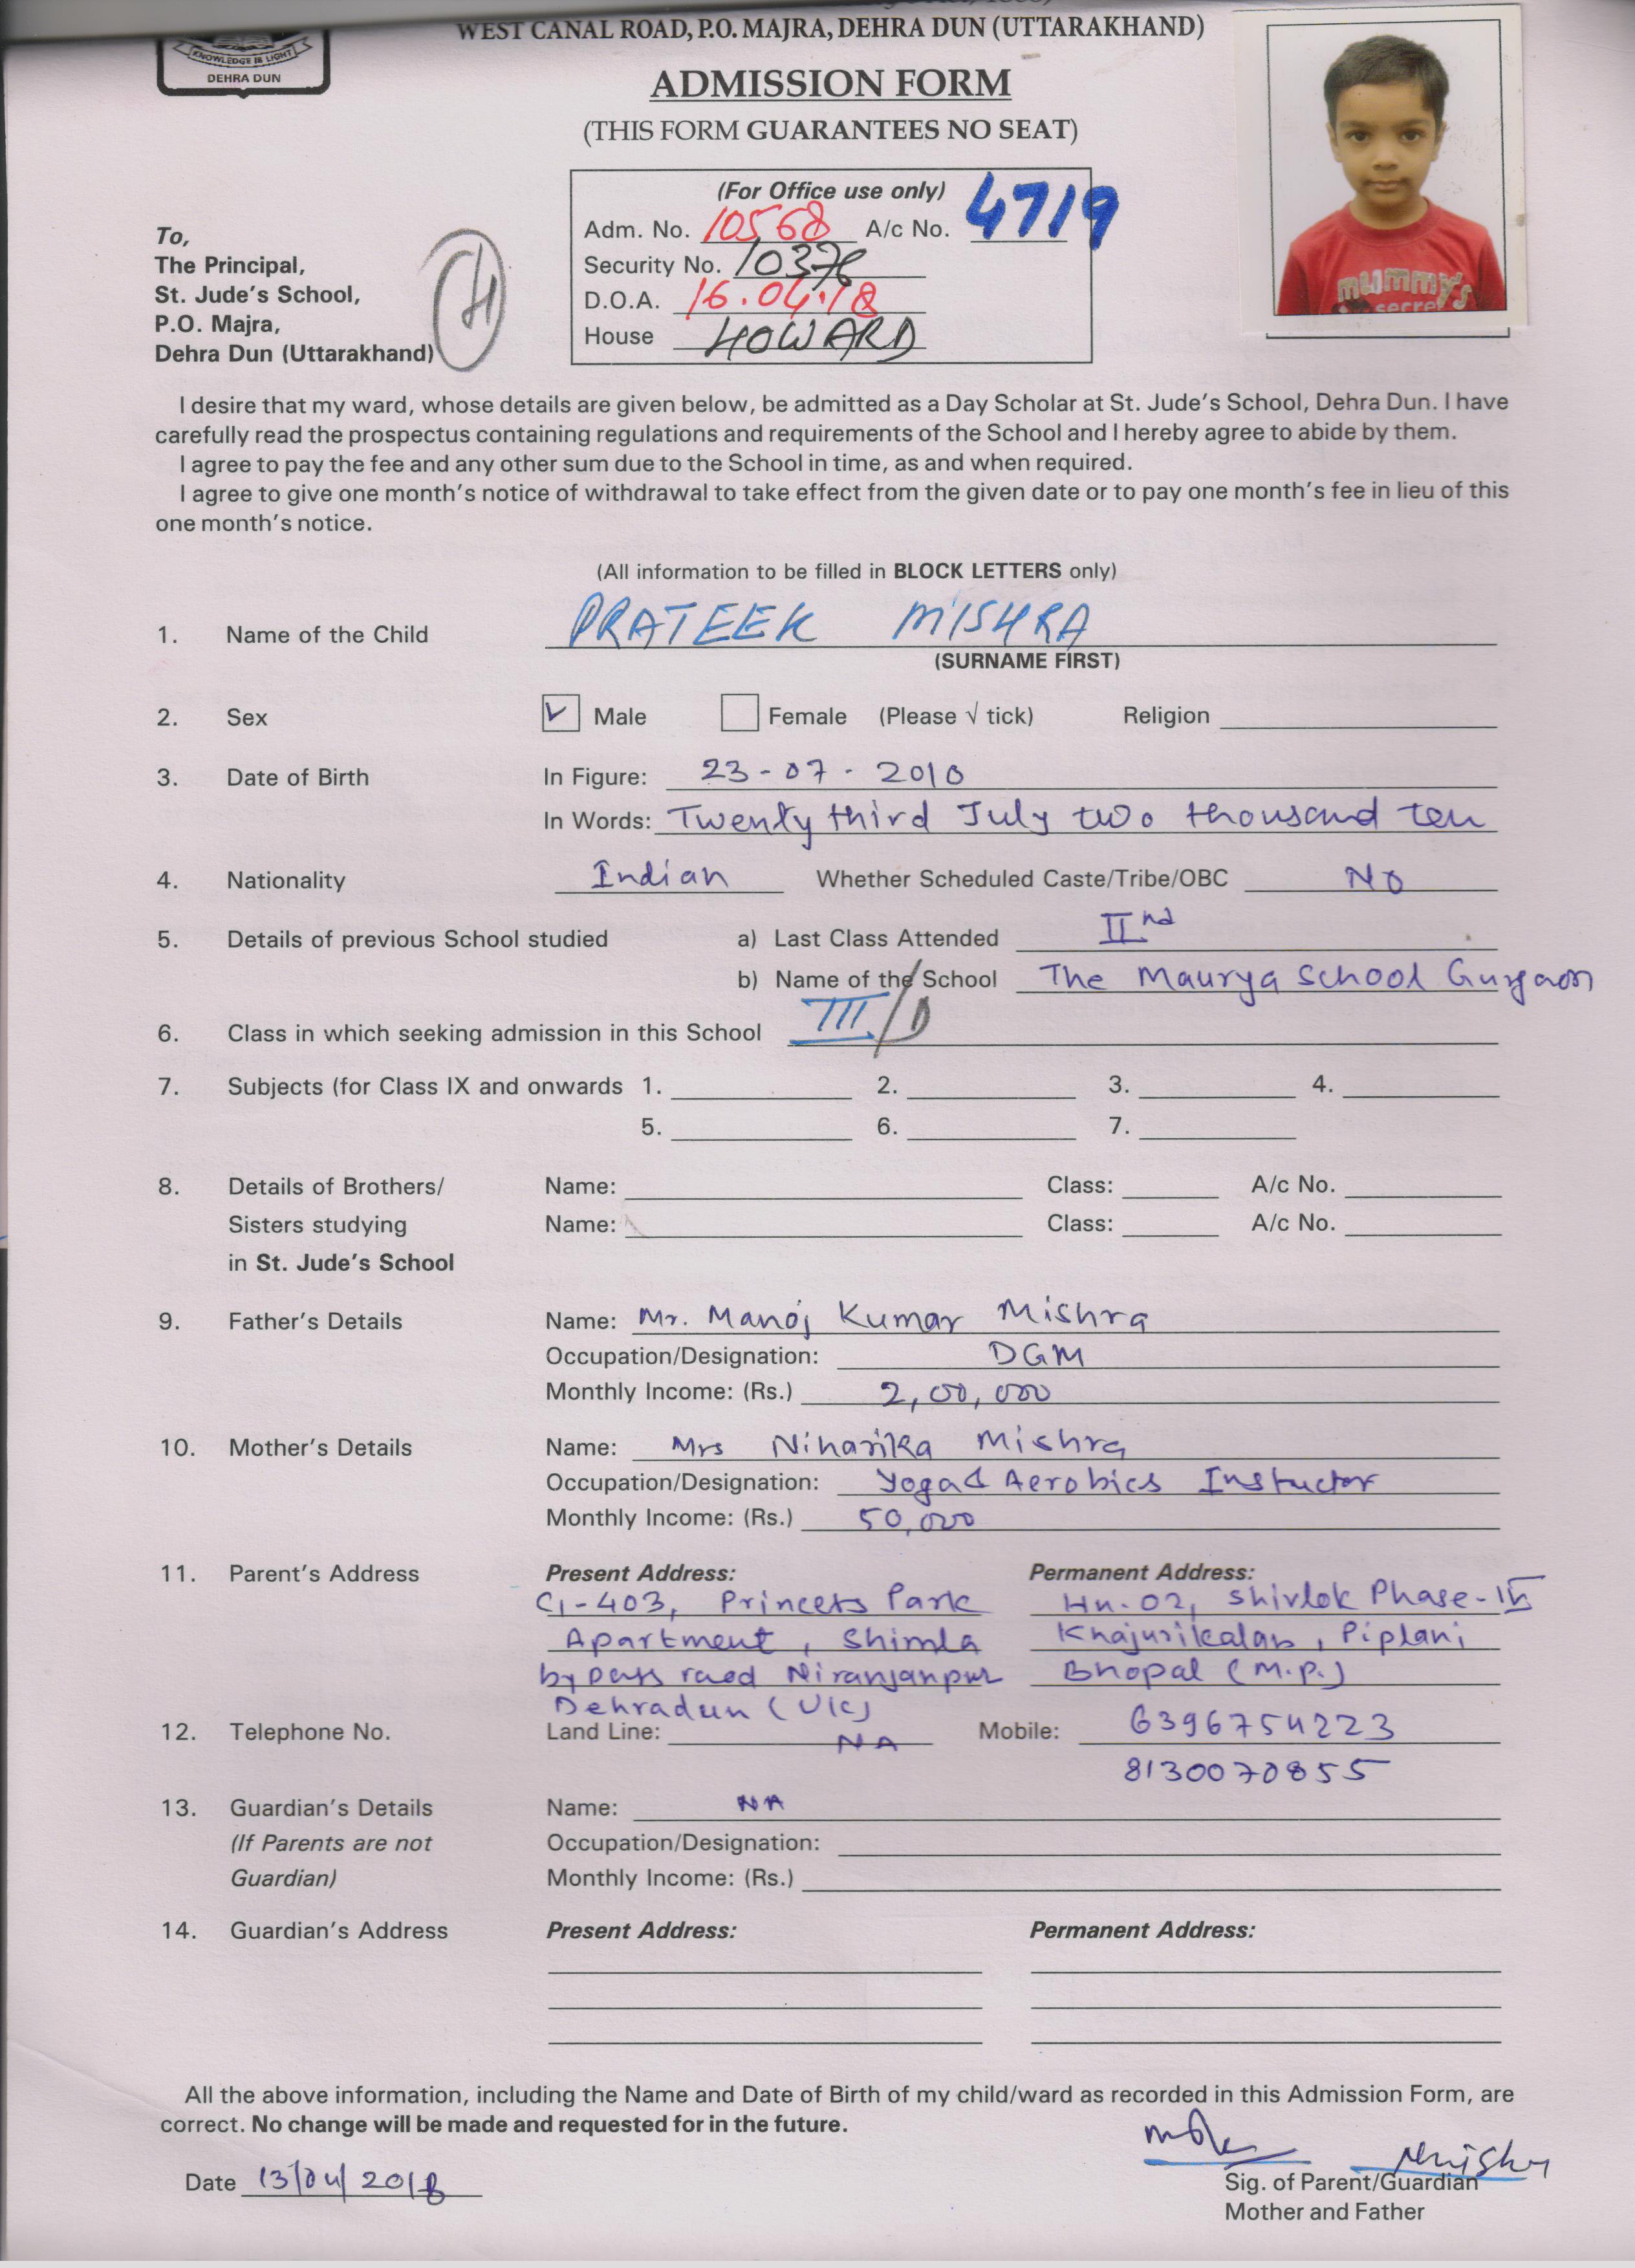 WEST CANAL ROAD, P.O. MAJRA, DEHRA DUN (UTTARAKHAND)
KNOWLEDGE IS LIGHT
DEHRA DUN
ADMISSION FORM
(THIS FORM GUARANTEES NO SEAT)
mummy's
secret
(For Office use only)
Adm. No. 10568 A/c No. 4719
Security No. 10376
D.O.A. 16.04.18
House HOWARD
To,
The Principal,
St. Jude's School,
P.O. Majra,
Dehra Dun (Uttarakhand)
H
I desire that my ward, whose details are given below, be admitted as a Day Scholar at St. Jude's School, Dehra Dun. I have
carefully read the prospectus containing regulations and requirements of the School and I hereby agree to abide by them.
I agree to pay the fee and any other sum due to the School in time, as and when required.
I agree to give one month's notice of withdrawal to take effect from the given date or to pay one month's fee in lieu of this
one month's notice.
(All information to be filled in BLOCK LETTERS only)
1. Name of the Child PRATEEK MISHRA
(SURNAME FIRST)
2. Sex Male Female (Please √ tick) Religion
3. Date of Birth In Figure: 23-07-2010
In Words: Twenty third July two thousand ten
4. Nationality Indian Whether Scheduled Caste/Tribe/OBC NO
5. Details of previous School studied a) Last Class Attended IInd
b) Name of the School The Maurya School Gurgaon
6. Class in which seeking admission in this School III/D
7. Subjects (for Class IX and onwards 1. 2. 3. 4.
5. 6. 7.
8. Details of Brothers/ Name: Class: A/c No.
Sisters studying Name: Class: A/c No.
in St. Jude's School
9. Father's Details Name: Mr. Manoj Kumar Mishra
Occupation/Designation: DGM
Monthly Income: (Rs.) 2,00,000
10. Mother's Details Name: Mrs Niharika Mishra
Occupation/Designation: Yoga & Aerobics Instuctor
Monthly Income: (Rs.) 50,000
11. Parent's Address Present Address: Permanent Address:
-403, Princess Park Hn-02, Shivlok Phase-
Apartment, Shimla Khajurikalan, Piplani
by pass road Niranjanpur Bhopal (M.P.)
Dehradun (UK)
12. Telephone No. Land Line: NA Mobile: 6396754223
8130070855
13. Guardian's Details Name: NA
(If Parents are not Occupation/Designation:
Guardian) Monthly Income: (Rs.)
14. Guardian's Address Present Address: Permanent Address:
All the above information, including the Name and Date of Birth of my child/ward as recorded in this Admission Form, are
correct. No change will be made and requested for in the future.
Date 13/04/2018
Sig. of Parent/Guardian
Mother and Father